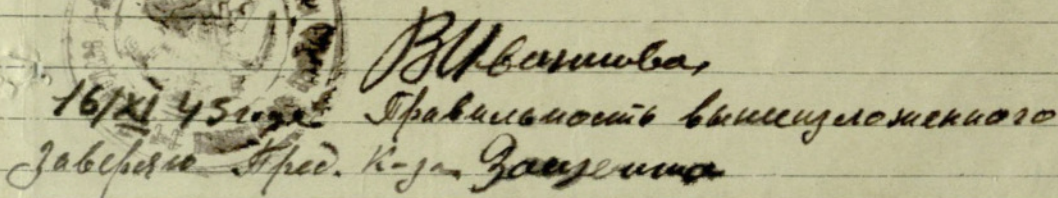 ВИванова,
16/XI 45 года Правильность вышеизложенного
Заверяю Пред. К-за